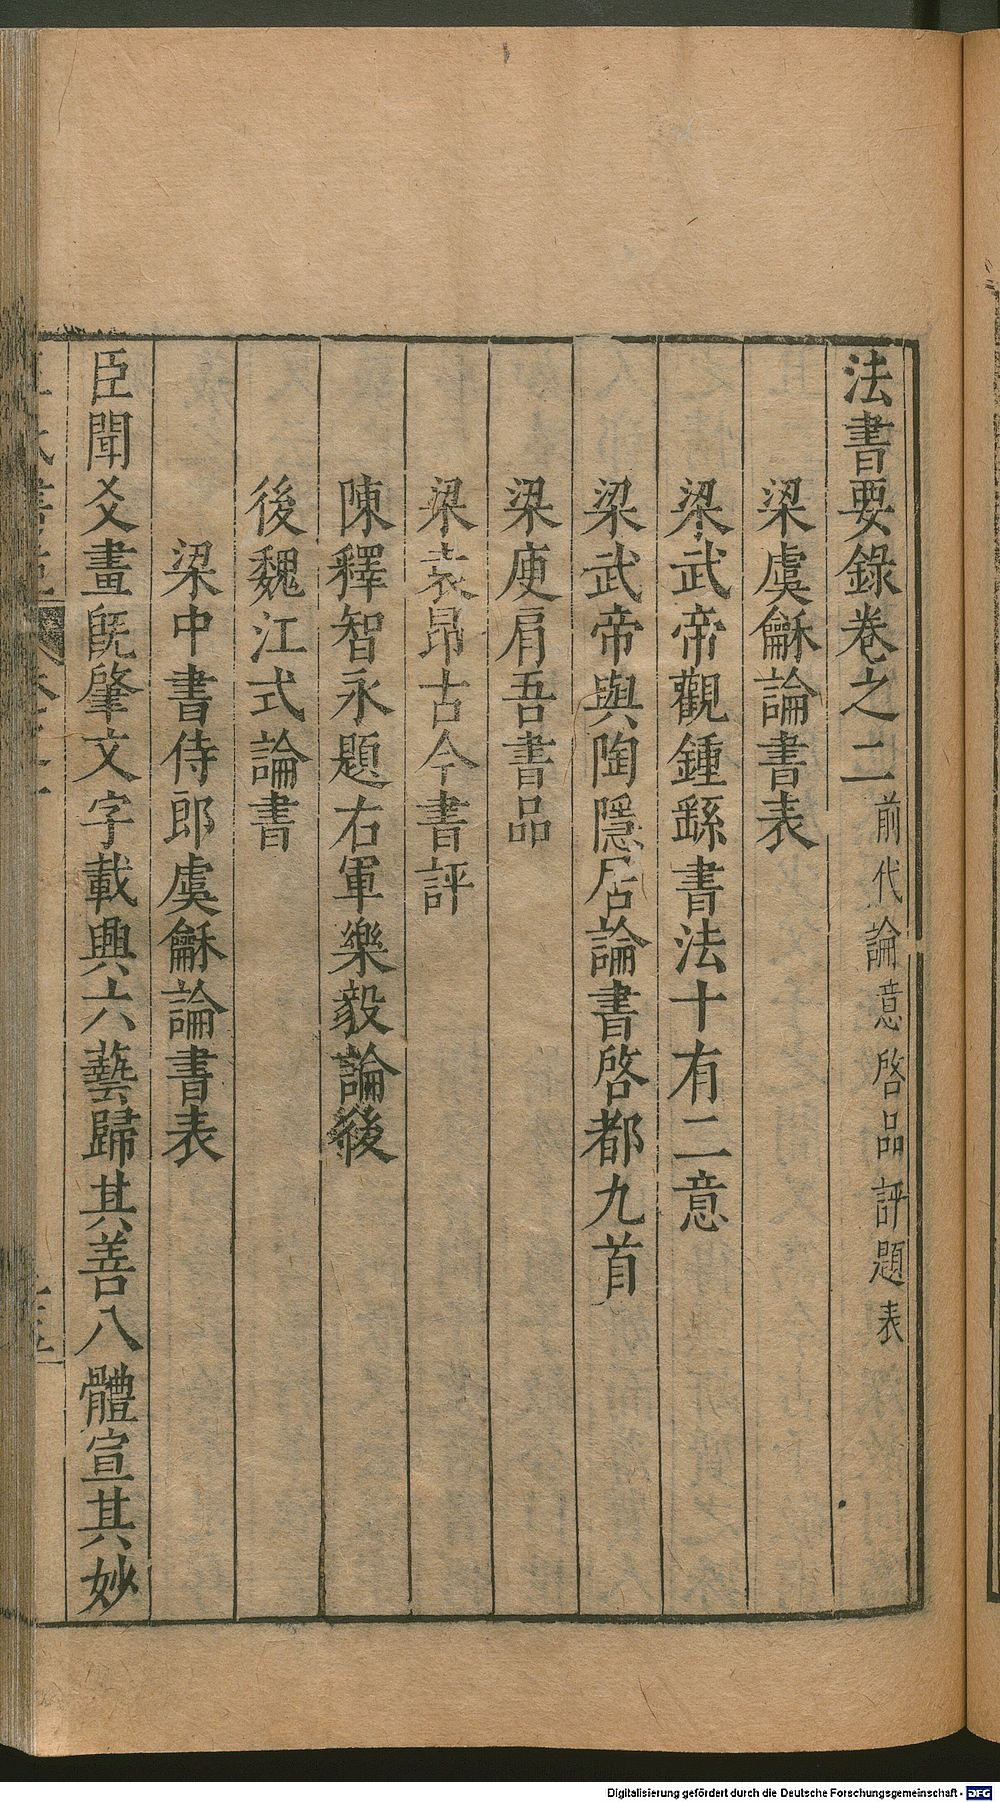 法書要錄卷之二前代論意啓品評題表
梁虞龢論書表
梁武帝觀鍾繇書法十有二意
梁武帝與陶隱居論書啓都九首
梁庾肩吾書品
梁袁昂古今書評
陳釋智永題右軍樂毅論後
後魏江式論書
梁中書侍郎虞龢論書表
臣聞爻畫旣肇文字載興六藝歸其善八體宣其妙
Digitalisierung gefördert durch die Deutsche Forschungsgemeinschaft - DFG